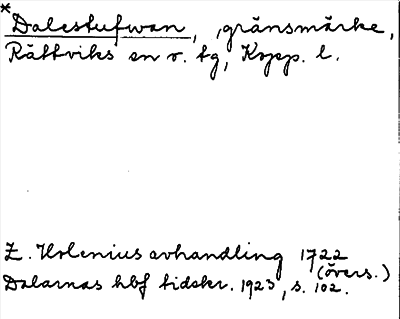 * Dalestufwan, gränsmärke,
Rättviks sn o. tg, Kopp. l.
Z. Holenius avhandling 1722
(övers.)
Dalarnas hbf tidskr. 1923, s. 102.